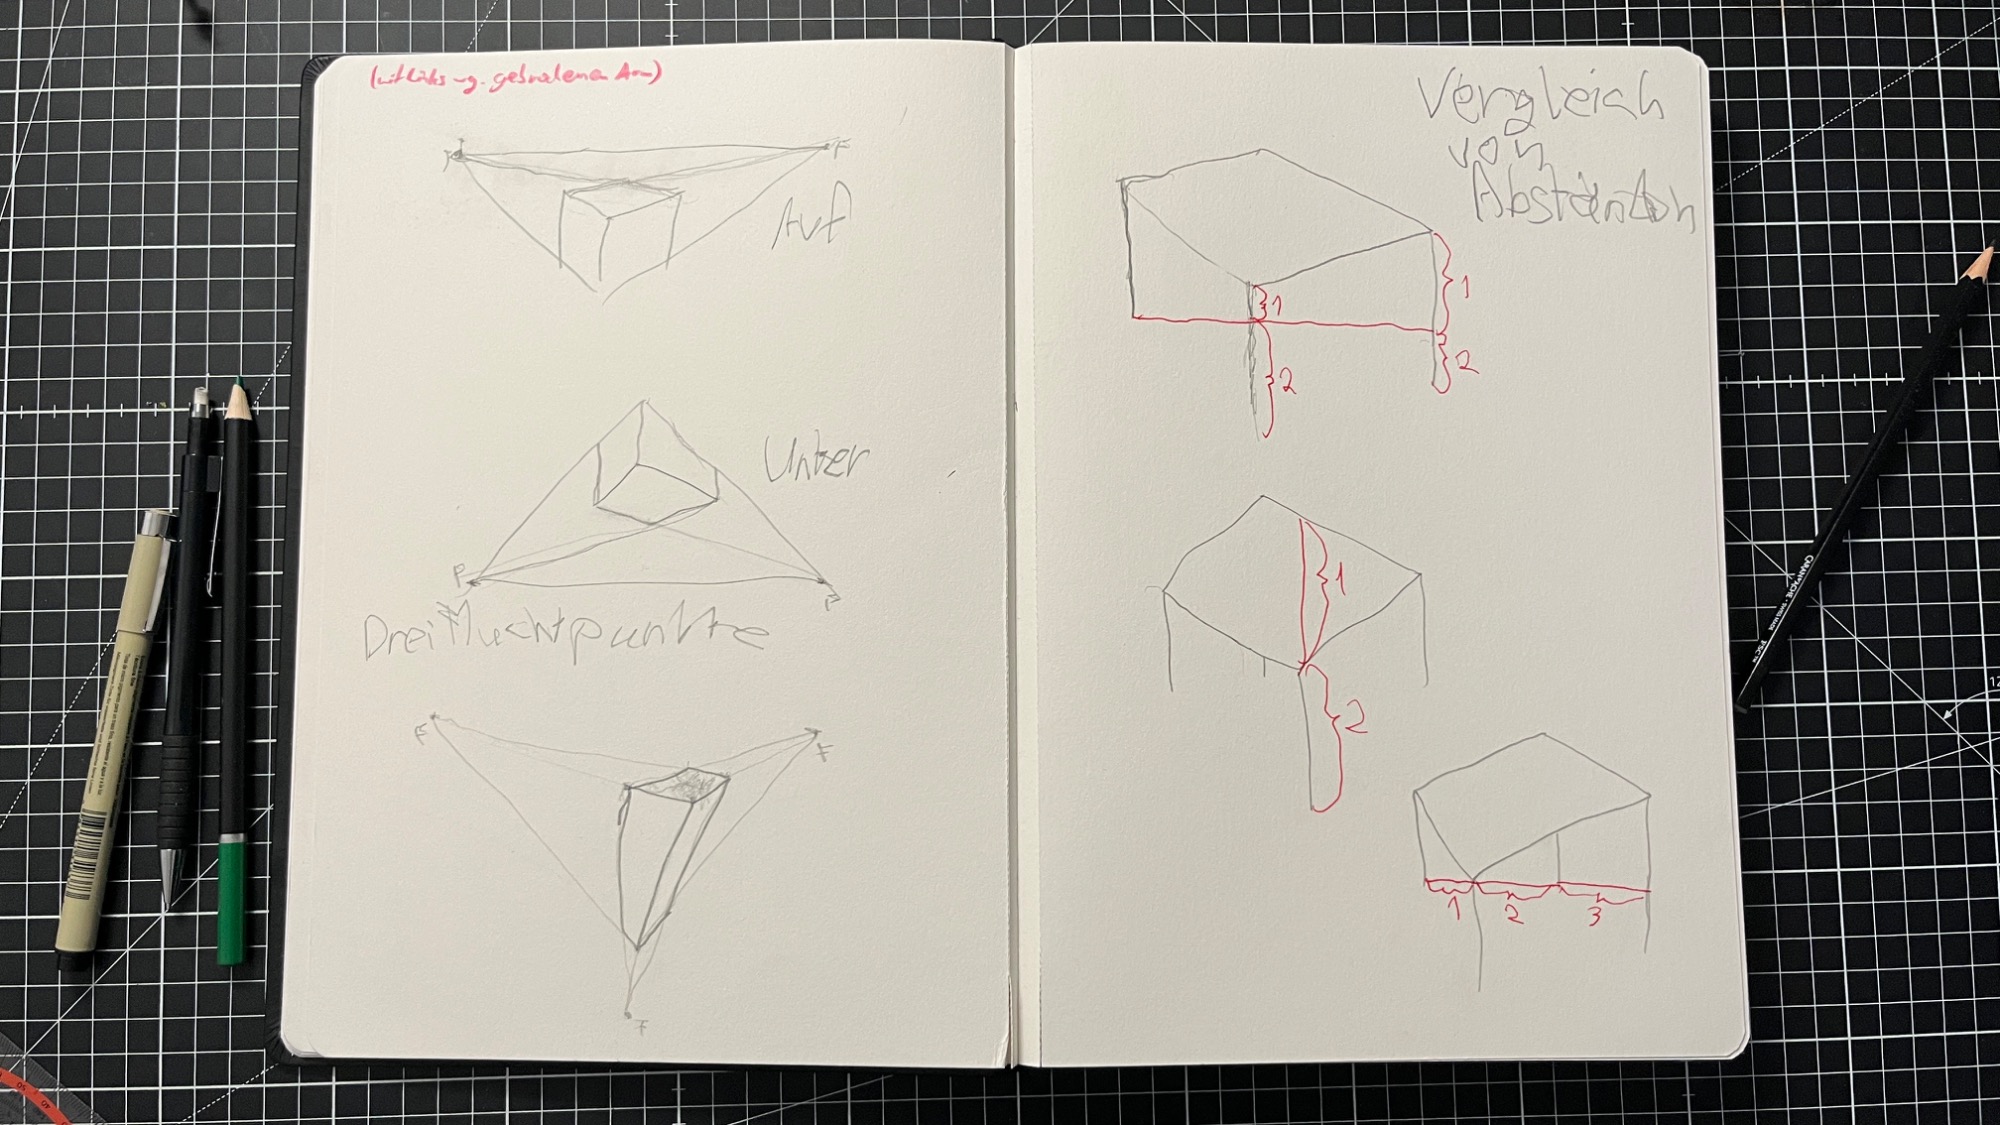 (mit links wg. gebrochenem Arm)
F F
Auf
Unter
F
F
Dreifluchtpunkte
F
F
F
Vergleich
von
Abständen
1
1
2
2
1
2
1 2 3